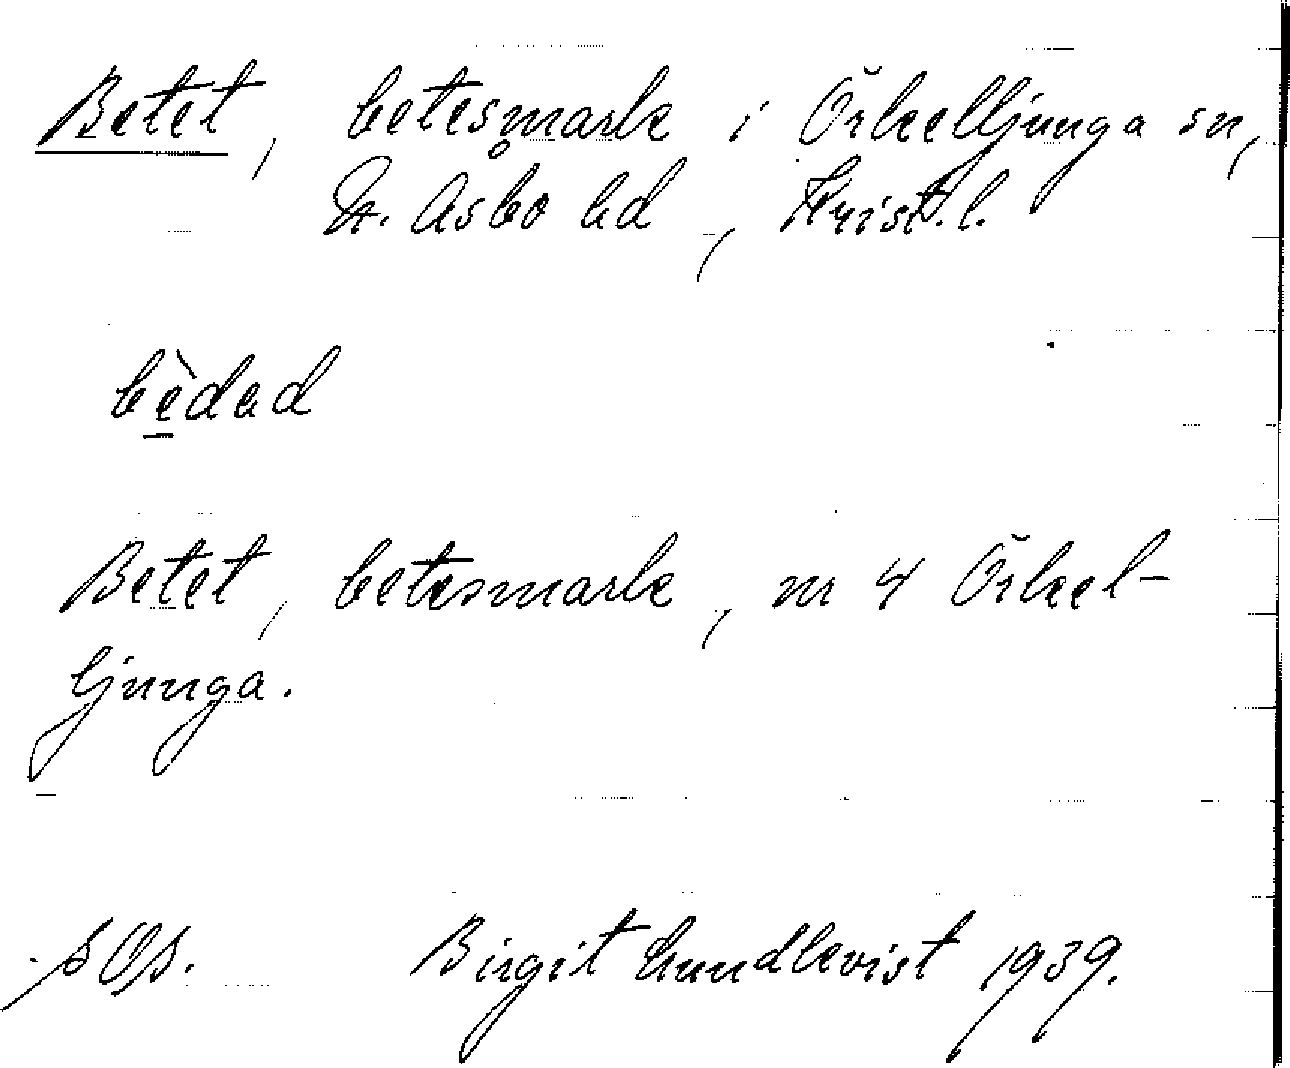 Betet, betesmark i Örkelljunga sn,
N. Åsbo hd, Krist. l.
bèdad
Betet, betesmark, nr 4 Örkel-
ljunga.
SOS. Birgit Lundkvist 1939.